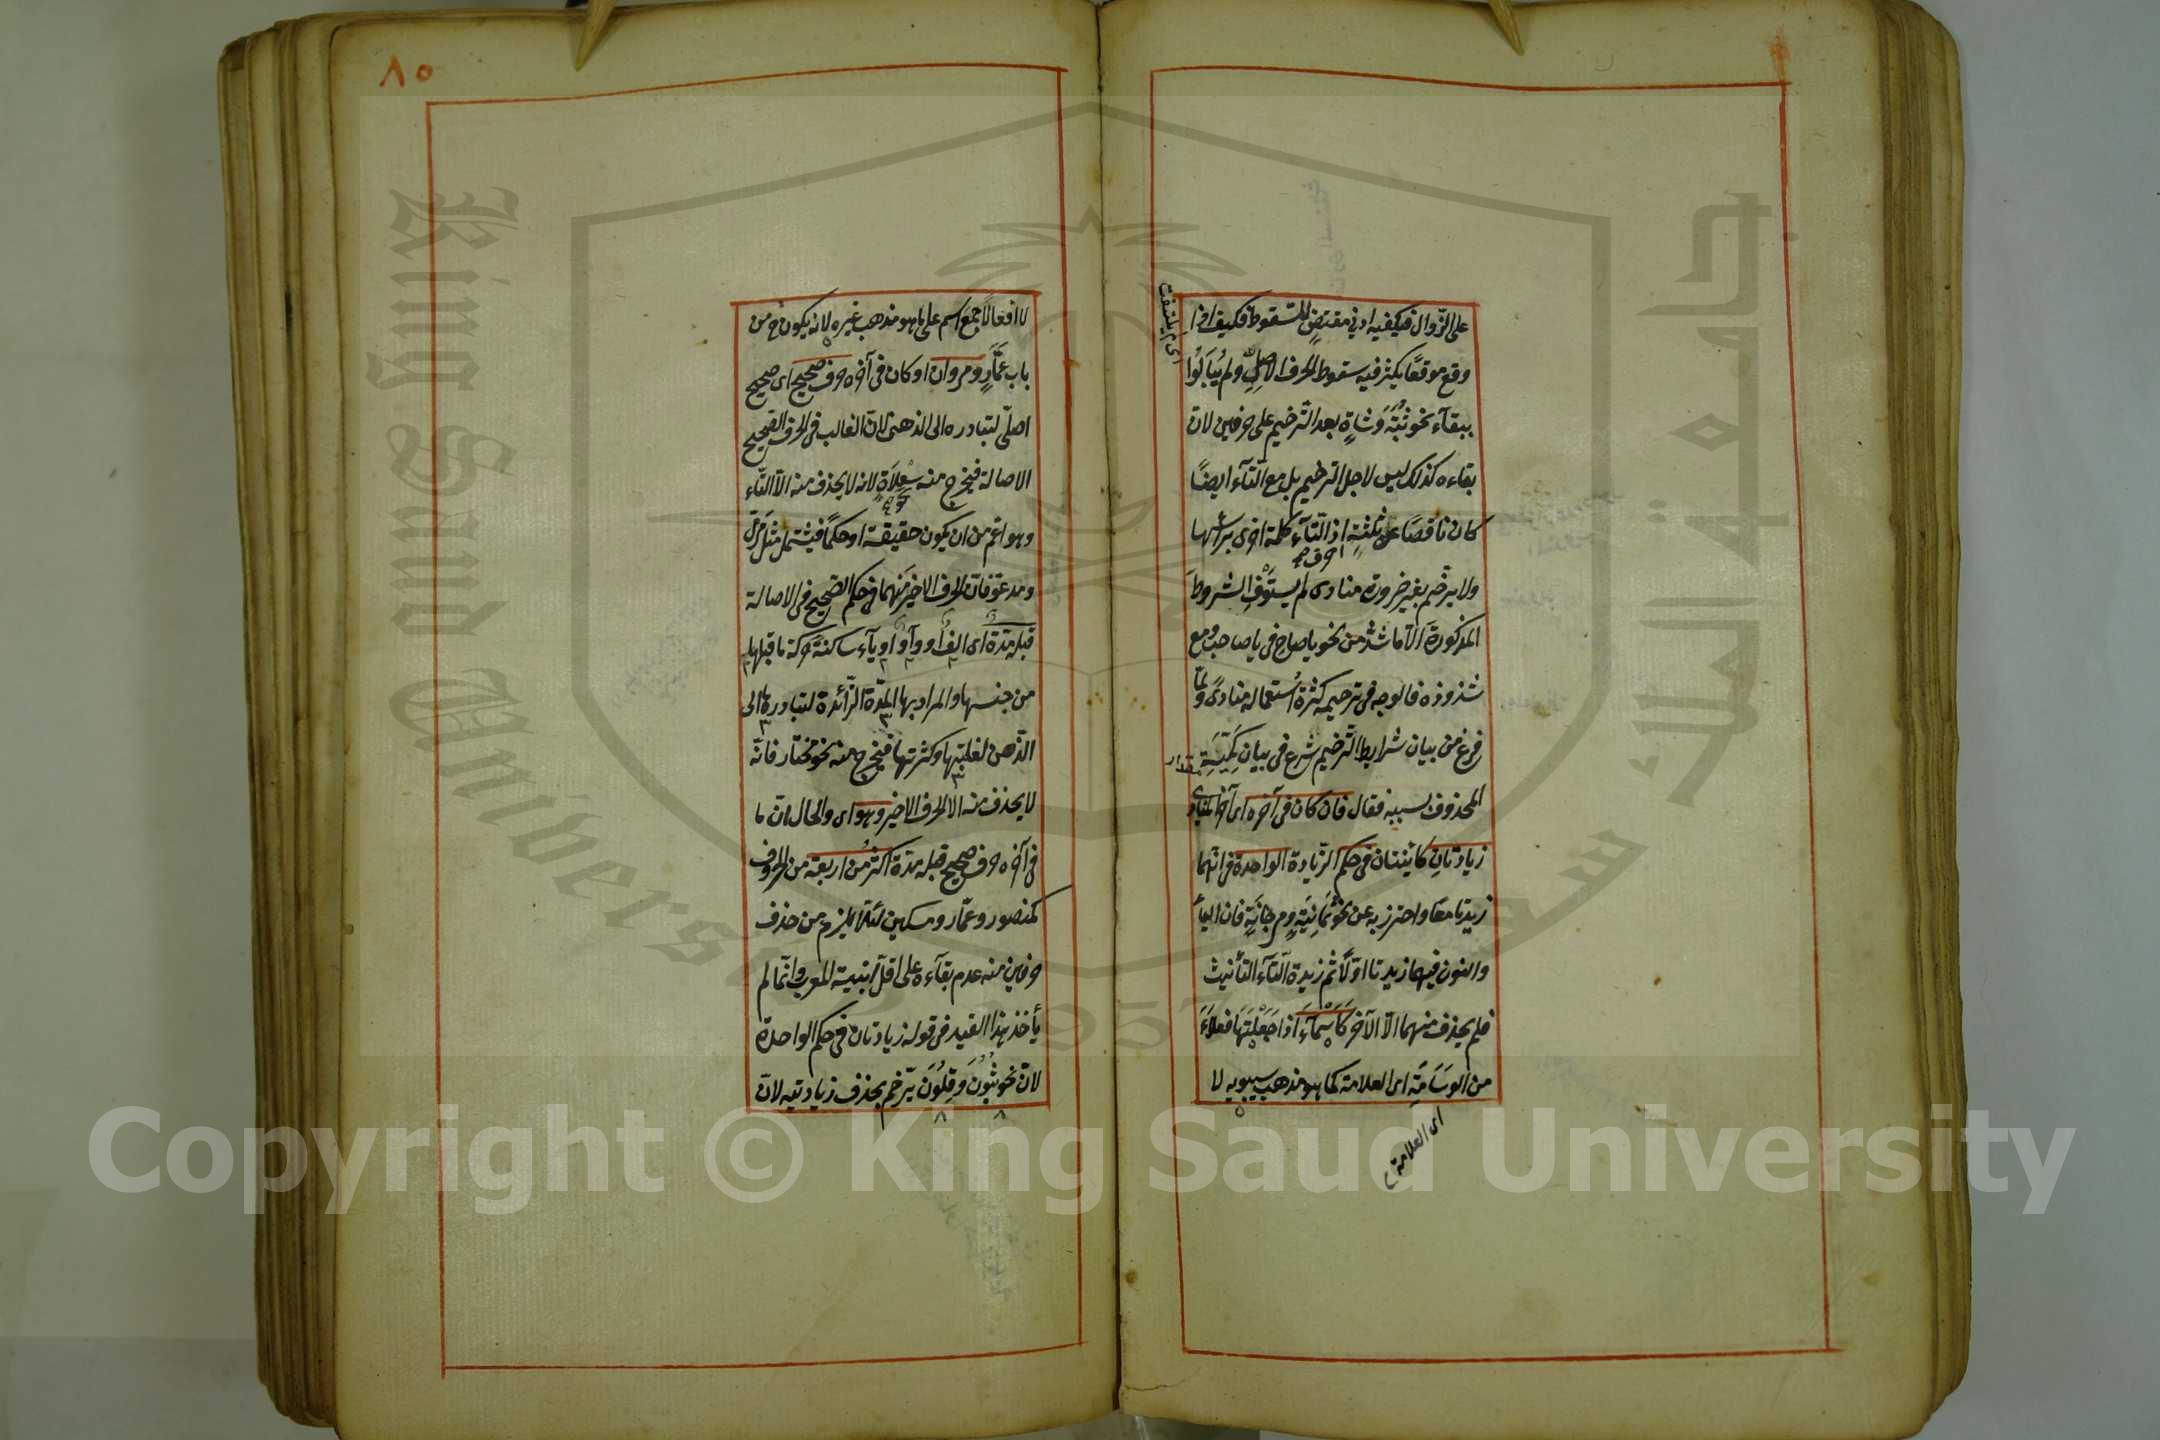 على الزوال فيكفيه ادنى مقتضٍ للسقوط فكيف اذا
وقع موقعًا يكثر فيه سقوط الحرف الاصلى ولم يُبَالُوا
اى لم يلتفت
ببقآء نحو ثُبَةٍ وَشاةٍ بعد الترخيم على حرفين لان
بقاءه كذلك ليس لاجل الترخيم بل مع التآء ايضًا
كان ناقصًا عن ثلثةٍ اذ التآء كلمة اخرى برأسها
احرف صح
ولا يرخم بغير ضرورة منادى لم يستوفِ الشروطَ
المذكورةَ الا ما شذ من نحو يا صاح فى يا صاحب ومع
شذوذه فالوجه فى ترخيمه كثرة استعماله منادى ولمّا
فرغ من بيان شرايط الترخيم شرع فى بيان كميّةِ
مقدار
المحذوف بسببه فقال فان كان فى آخره اى آخر المنادى
زيادتانِ كائنتان فى حكم الزيادة الواحدة فى انهما
زيدتا معًا واحترز به عن نحو ثمانيةٍ ومرجانةٍ فان اليآء
والنون فيهما زيدتا اوّلًا ثم زيدة التآء التأنيث
فلم يحذف منهما الا الآخر كَاَسْمَآءَ اذا جَعَلْتَهَا فعلآءَ
من الوَسَامَةِ اى العلامة كما هو مذهب سيبويه لا
اى العلامة
٨٥
لا افعالًا جمع اسم على ما هو مذهب غيره لانه يكون ح من
باب عَمَّارٍ ومروان او كان فى آخره حرف صحيح اى صحيح
اصلىّ لتبادره الى الذهن لان الغالب فى الحرف الصحيح
الاصالة فيخرج منه سِعْلاةٍ لانه لا يحذف منه الا التآء
وهو اعم من ان يكون حقيقة او حكمًا فيشتمل مثل مرمىّ
ومدعوّ فان الحرف الاخير منهما فى حكم الصحيح فى الاصالة
قبله مدّة اى الف او واو او يآء ساكنة حركة ما قبلها
من جنسها والمراد بها المدّة الزائدة لتبادرها الى
الذهن لغلبتها وكثرتها فيخرج منه نحو مختار فانه
لا يحذف منه الا الحرف الاخير وهو اى والحال ان ما
فى آخره حرف صحيح قبله مدة اكثر من اربعة من الحروف
كمنصور وعمّار ومسكين لئلا يلزم من حذف
حرفين منه عدم بقآءه على اقل ابنية المعرب وانما لم
يأخذ هذا القيد فى قوله زيادتان فى حكم الواحدة
لانّ نحو ثُبُونَ وَقِلُونَ يرخم بحذف زيادتيه لانّ
King Saud University
1957
Copyright © King Saud University